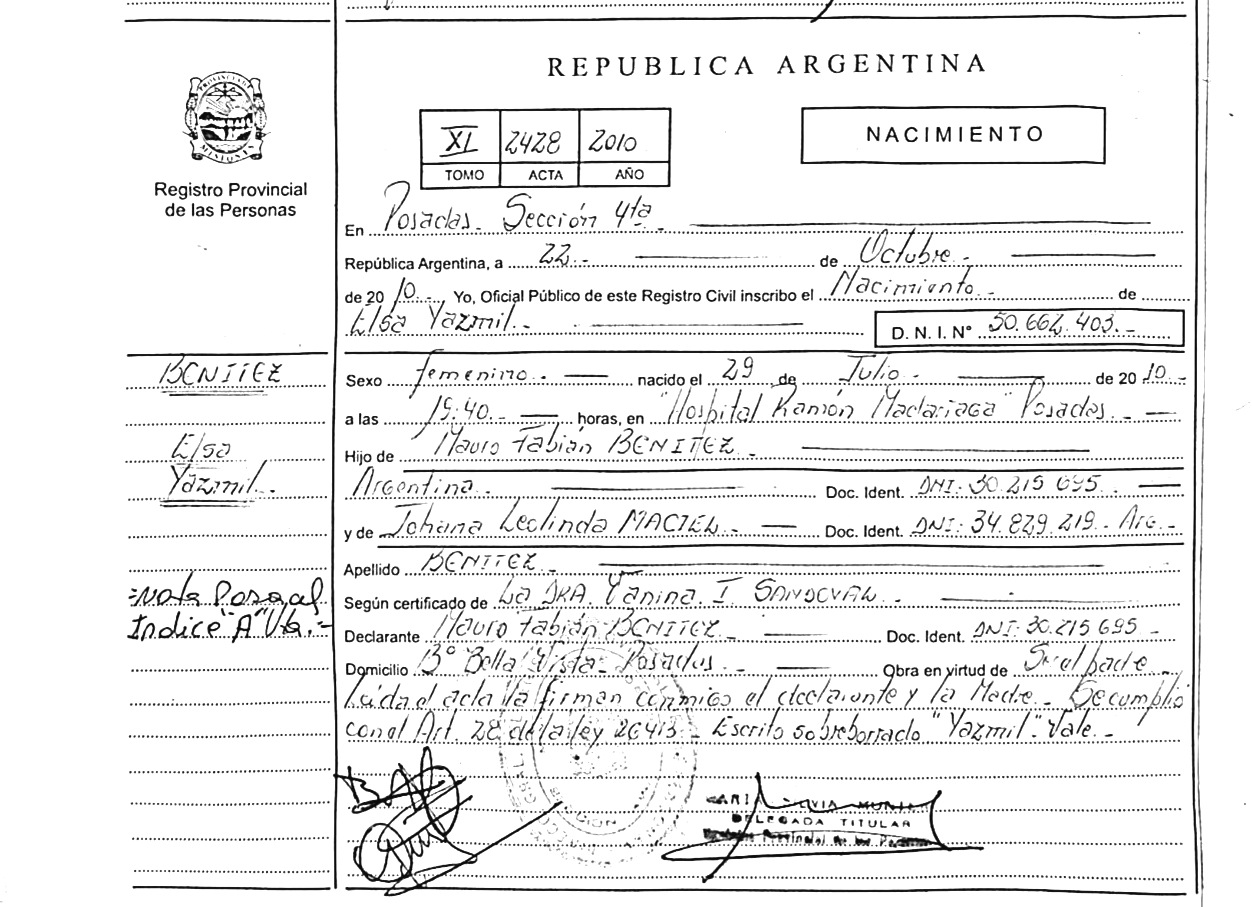 REPUBLICA ARGENTINA
PROVINCIA DE MISIONES
Registro Provincial
de las Personas
XI 2428 2010
TOMO ACTA AÑO
NACIMIENTO
En Posadas. Sección 4ta
República Argentina, a 22.- de Octubre.-
de 2010.-, Yo, Oficial Público de este Registro Civil inscribo el Nacimiento.- de
Elsa Yazmil.- D. N. I. Nº 50.662.403.-
BENITEZ
Elsa
Yazmil.-
Sexo femenino.- nacido el 29 de Julio.- de 2010.-
a las 19:40.- horas, en "Hospital Ramón Madariaga" Posadas.-
Hijo de Mauro Fabián BENITEZ
Argentina.- Doc. Ident. DNI: 30.215 695
y de Johana Leclinda MACIEL.- Doc. Ident. DNI: 34.829.219.- Arg.-
Apellido BENITEZ.-
Según certificado de La DRA. Yanina. I SANDOVAL.-
=Nota Pasa al
Indice "A" Vta.-
Declarante Mauro Fabián BENITEZ.- Doc. Ident. DNI: 30.215 695.-
Domicilio Bº Bella Vista- Posadas.- Obra en virtud de Ser el padre
Leída el acta la firman conmigo el declarante y la Madre.- Se cumplió
con el Art. 28 de la ley 26413.- Escrito sobreborrado "Yazmil".- Vale.-
DELEGADA TITULAR
Registro Provincial de las Personas